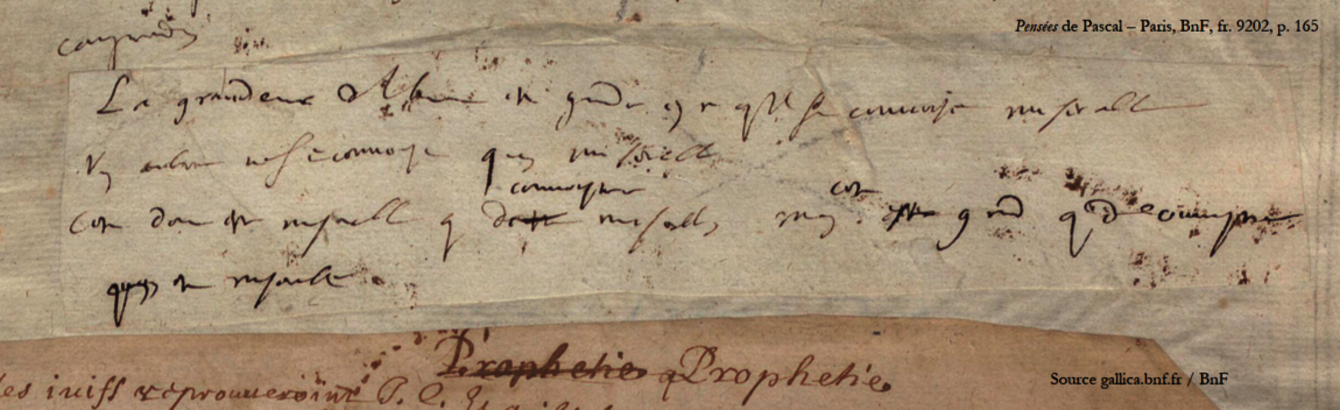 Pensées de Pascal – Paris, BnF, fr. 9202, p. 165
La grandeur de l'home est grande en ce qu'il se connoist miserable
Vn arbre ne se connoist pas miserable
connoistre
C'est donc estre miserable que de miserable, mais c'est estre grand que de connoistre
qu'on est miserable.
Prophetie Prophetie
les iuifs reprouueroint J. C.
Source gallica.bnf.fr / BnF